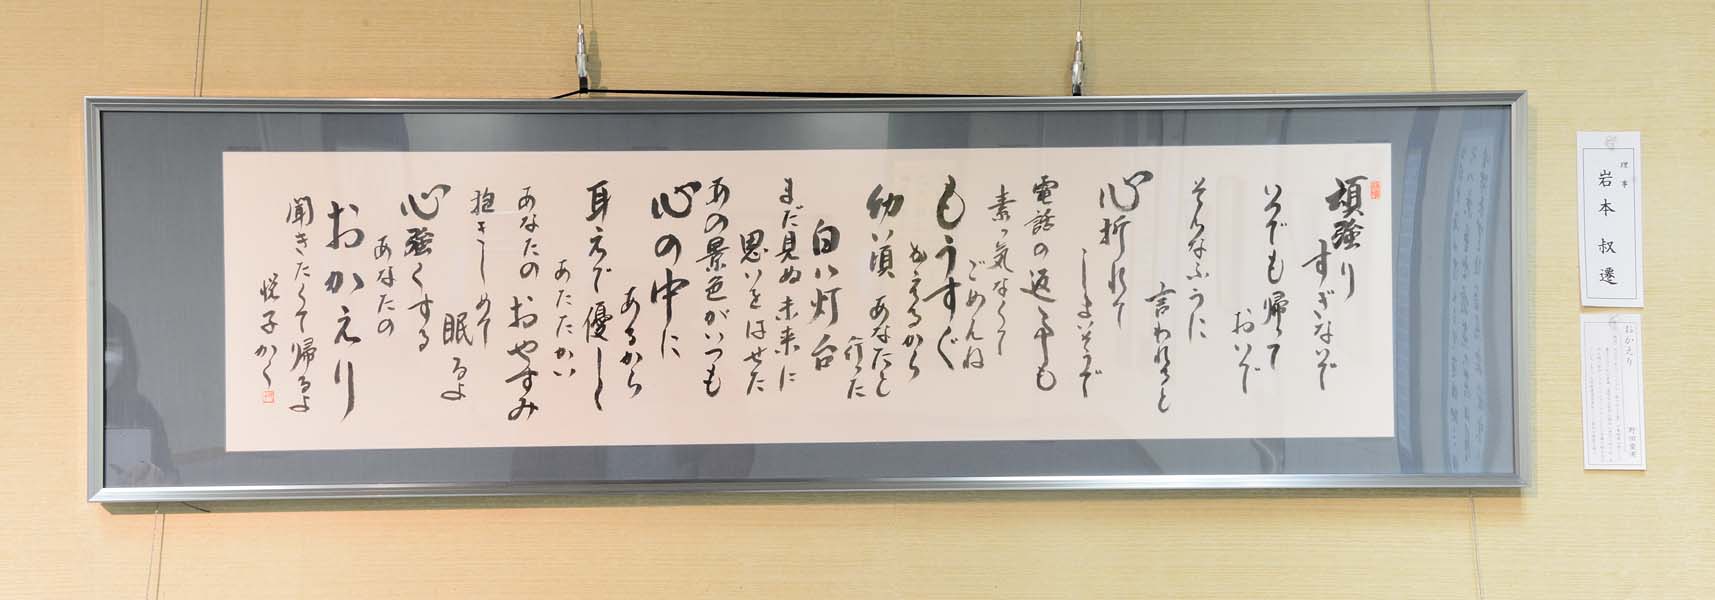 頑強り
すぎないで
いつでも帰って
おいで
そんなふうに
言われると
心折れて
しまいそうで
電話の返事も
素っ気なくて
ごめんね
もうすぐ
会えるから
幼い頃 あなたと
行った
白い灯台
まだ見ぬ未来に
思いをはせた
あの景色がいつも
心の中に
あるから
耳元で優しく
あたたかい
あなたのおやすみ
抱きしめて
眠るよ
心強くする
あなたの
おかえり
聞きたくて帰るよ
悦子かく
理事
岩本 叔遷
おかえり